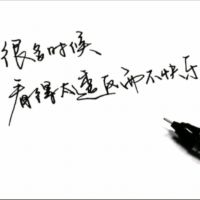 很多时候
看得太透反而不快乐